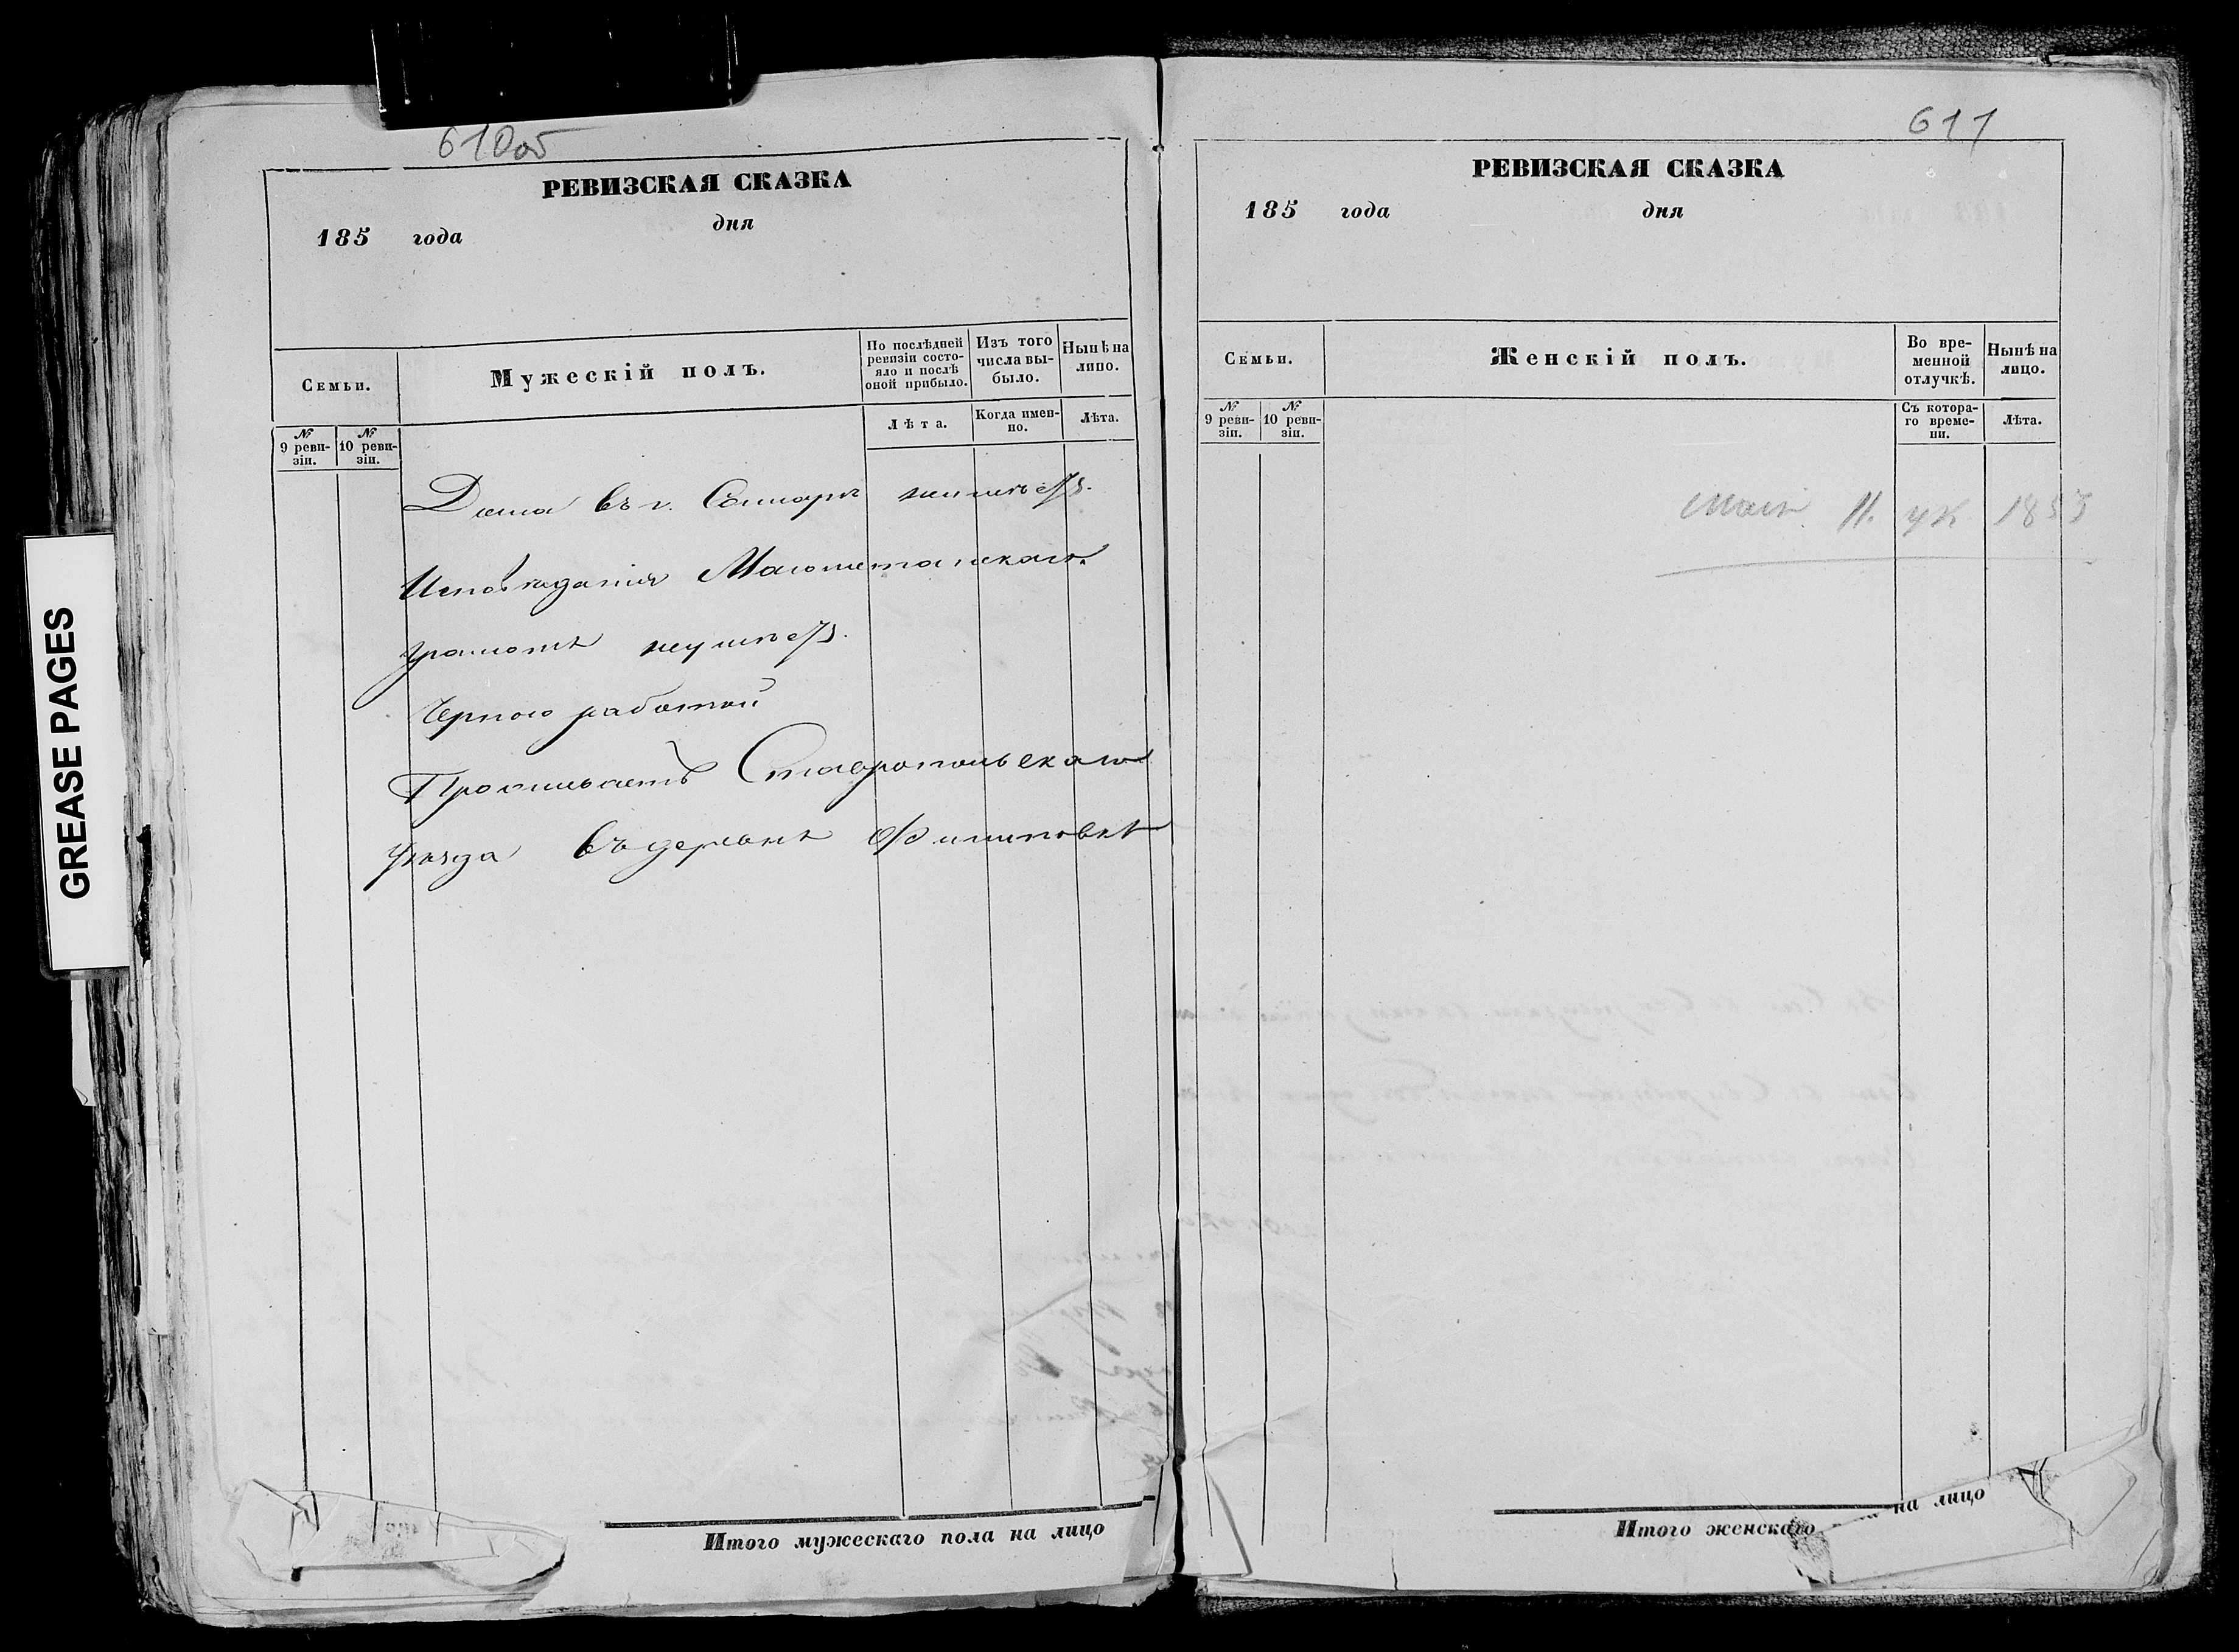 GREASE PAGES
610об
РЕВИЗСКАЯ СКАЗКА
185 года дня
Семьи.
Мужескій полъ.
По послѣдней ревизіи состояло и послѣ оной прибыло.
Изъ того числа выбыло.
Нынѣ на лицо.
№ 9 ревизіи.
№ 10 ревизіи.
Лѣта.
Когда именно.
Лѣта.
Дома въ г. Самарѣ неимѣетъ.
Исповѣданія Магометанскаго.
грамотѣ неумѣетъ.
Черною работой
Проживаетъ Ставропольскаго
уѣзда въ деревнѣ Филиповкѣ
Итого мужескаго пола на лицо
611
РЕВИЗСКАЯ СКАЗКА
185 года дня
Семьи.
Женскій полъ.
Во временной отлучкѣ.
Нынѣ на лицо.
№ 9 ревизіи.
№ 10 ревизіи.
Съ котораго времени.
Лѣта.
11. ук 1853
Итого женскаго на лицо